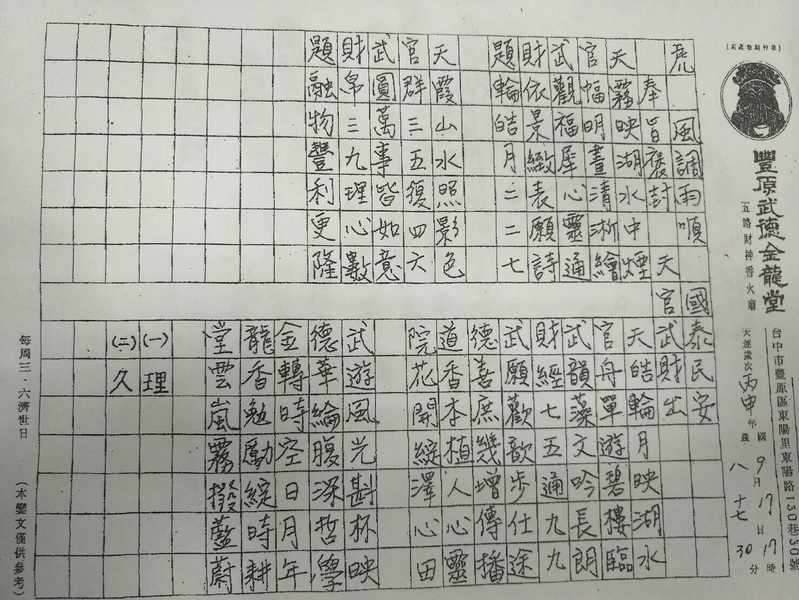 豐原武德金龍堂
五路財神香火廟
台中市豐原區東陽里東陽路130巷30號
天運歲次丙申年
國9月17日17時
農八十七30分
虎
風調雨順
國泰民安
奉旨褒封
天官武財出
天霧映湖水中煙
官幅明畫清淅繪
武觀福犀心靈通
財依景緻表願詩
題輪皓月二二七
天霞山水照影色
官群三五復四六
武圓萬事皆如意
財帛三九理心數
題融物豐利更隆
天皓輪月映湖水
官舟單遊碧樓臨
武韻藻文吟長朗
財經七五通九九
武願歡歆步仕途
德善庶幾增傳播
道香本植人心靈
院花開綻澤心田
武遊風光斟杯映
德華綸腹深哲學
金轉時空日月年
龍香勉勵綻時耕
堂雲嵐霧撥藍蔚
(一)理
(二)久
每周三、六濟世日
(本鑾文僅供參考)